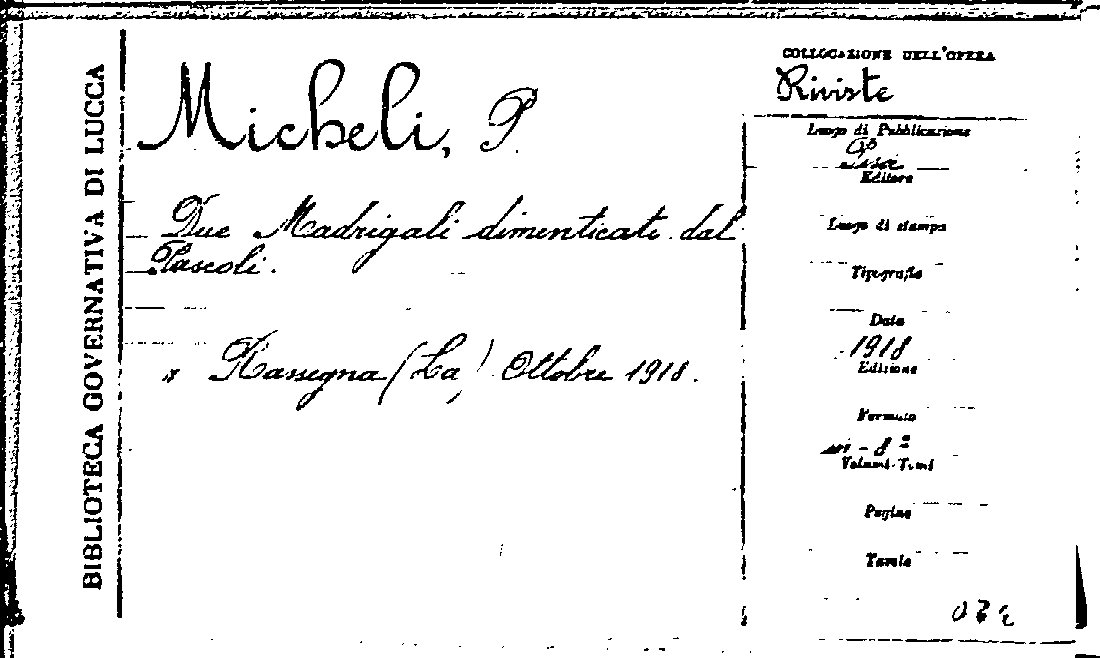 BIBLIOTECA GOVERNATIVA DI LUCCA
Micheli, P.
Due Madrigali dimenticati dal
Pascoli.
Rassegna (La) Ottobre 1918.
COLLOCAZIONE DELL'OPERA
Riviste
Luogo di Pubblicazione
Pisa
Editore
Luogo di stampa
Tipografia
Data
1918
Edizione
Formato
in-8º
Volumi-Tomi
Pagine
Tavole